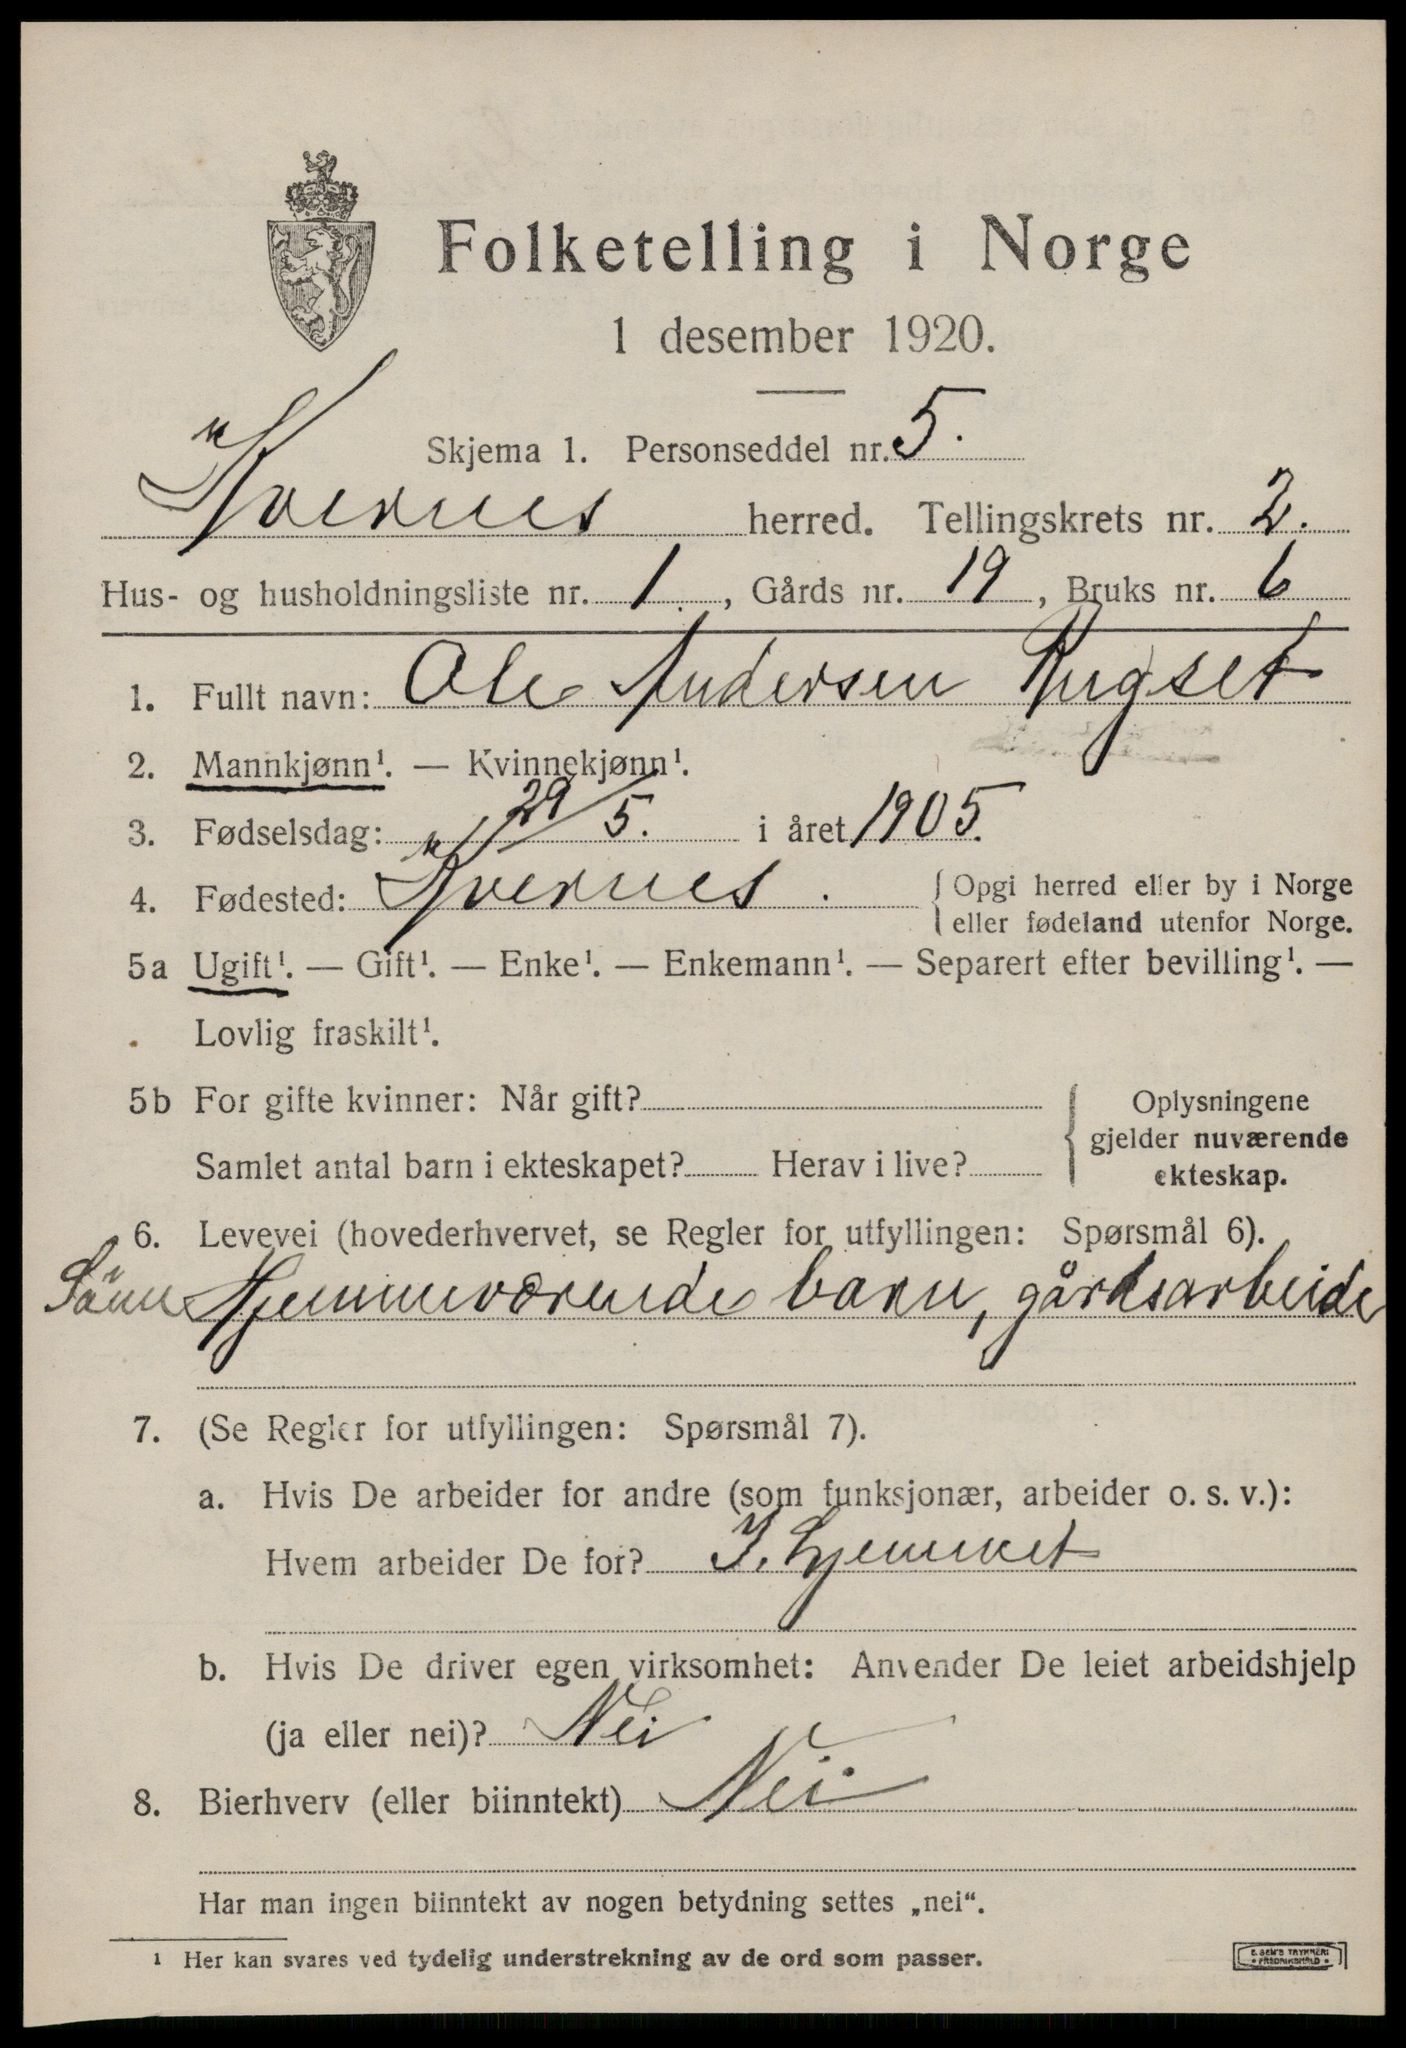 Folketelling i Norge
1 desember 1920.
Skjema 1. Personseddel nr. 5.
Kvernes herred. Tellingskrets nr. 2.
Hus- og husholdningsliste nr. 1, Gårds nr. 19, Bruks nr. 6
1. Fullt navn: Ole Andersen Rugset
2. Mannkjønn¹. — Kvinnekjønn¹.
3. Fødselsdag: 29/5. i året 1905.
4. Fødested: Kvernes. { Opgi herred eller by i Norge
eller fødeland utenfor Norge.
5a Ugift¹. — Gift¹. — Enke¹. — Enkemann¹. — Separert efter bevilling¹. —
Lovlig fraskilt¹.
5b For gifte kvinner: Når gift? { Oplysningene
gjelder nuværende
Samlet antal barn i ekteskapet? Herav i live?
ekteskap.
6. Levevei (hovederhvervet, se Regler for utfyllingen: Spørsmål 6).
Sönn Hjemmeværende barn, gårdsarbeide
7. (Se Regler for utfyllingen: Spørsmål 7).
a. Hvis De arbeider for andre (som funksjonær, arbeider o. s. v.):
Hvem arbeider De for? I. hjemmet
b. Hvis De driver egen virksomhet: Anvender De leiet arbeidshjelp
(ja eller nei)? Nei
8. Bierhverv (eller biinntekt) Nei
Har man ingen biinntekt av nogen betydning settes „nei“.
¹ Her kan svares ved tydelig understrekning av de ord som passer.